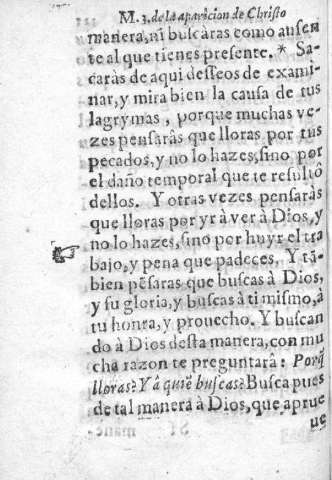 M. 3. de la aparicion de Christo
manera, ni buscàras como ausen
te al que tienes presente. * Sa-
caràs de aqui desseos de exami-
nar, y mira bien la causa de tus
lagrymas, porque muchas ve-
zes pensaràs que lloras por tus
pecados, y no lo hazes, sino por
el daño temporal que te resultò
dellos. Y otras vezes pensaràs
que lloras por yr à ver à Dios, y
no lo hazes, sino por huyr el tra
bajo, y pena que padeces. Y tã-
bien pẽsaras que buscas à Dios,
y su gloria, y buscas à ti mismo, à
tu honra, y prouecho. Y buscan
do à Dios desta manera, con mu
cha razon te preguntarà: Porq̃
lloras? Y à quiẽ buscas? Busca pues
de tal manera à Dios, que aprue
ue